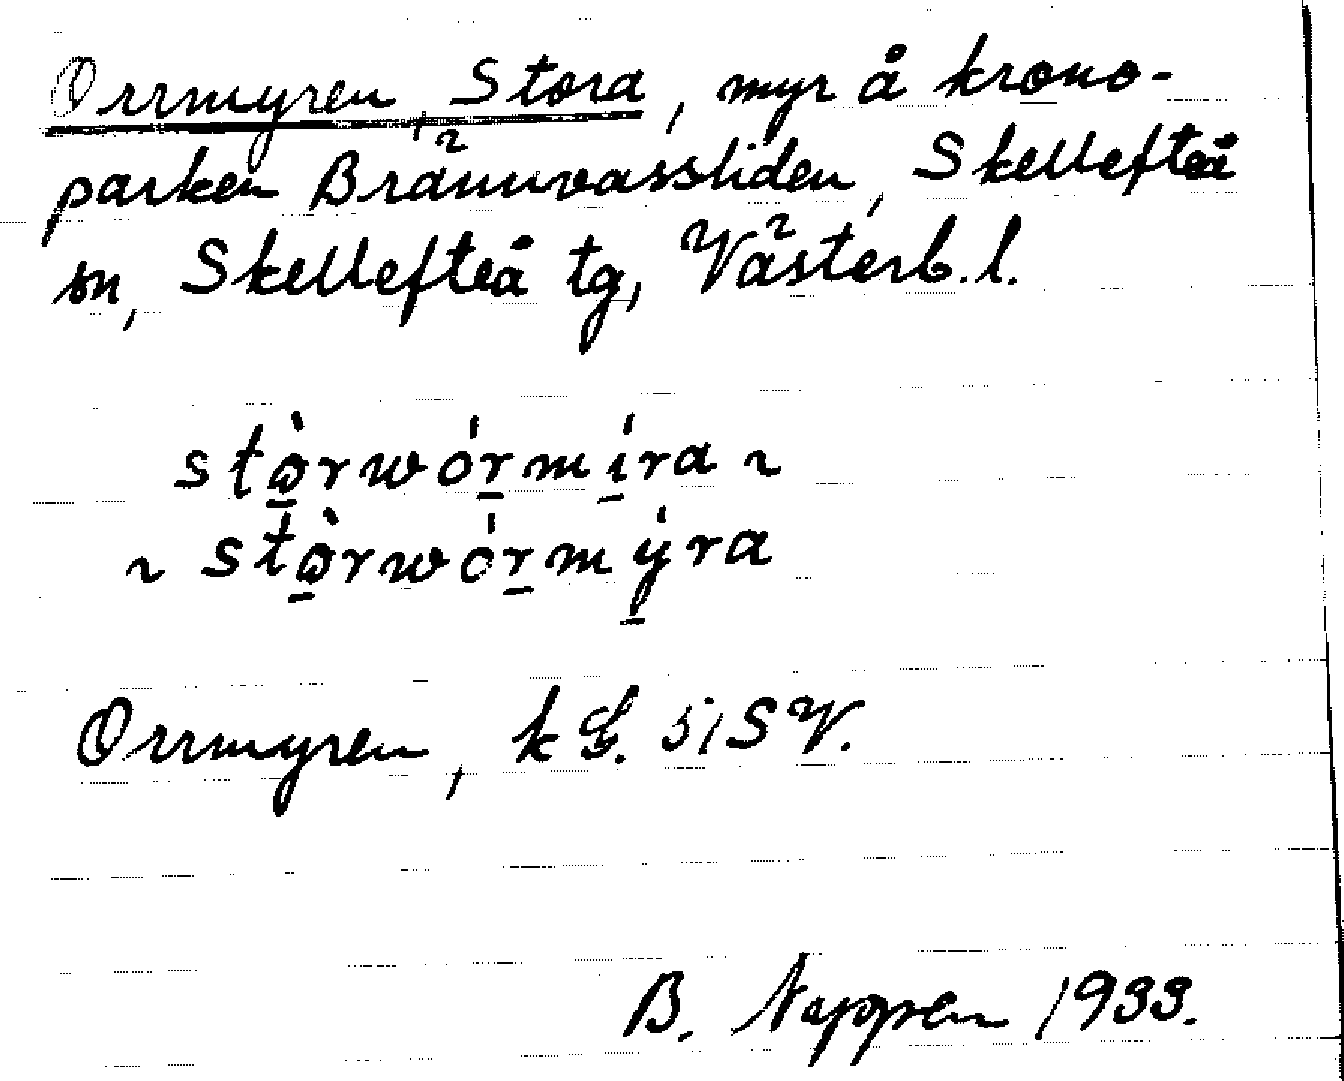 Orrmyren, Stora, myr å krono-
parken Brännvassliden, Skellefteå
sn, Skellefteå tg, Västerb. l.
stɷ̠̀rwór̠mí̠ra ~
~ stɷ̠̀rwór̠mý̠ra
Orrmyren, k G. 51 SV.
B. 1933.